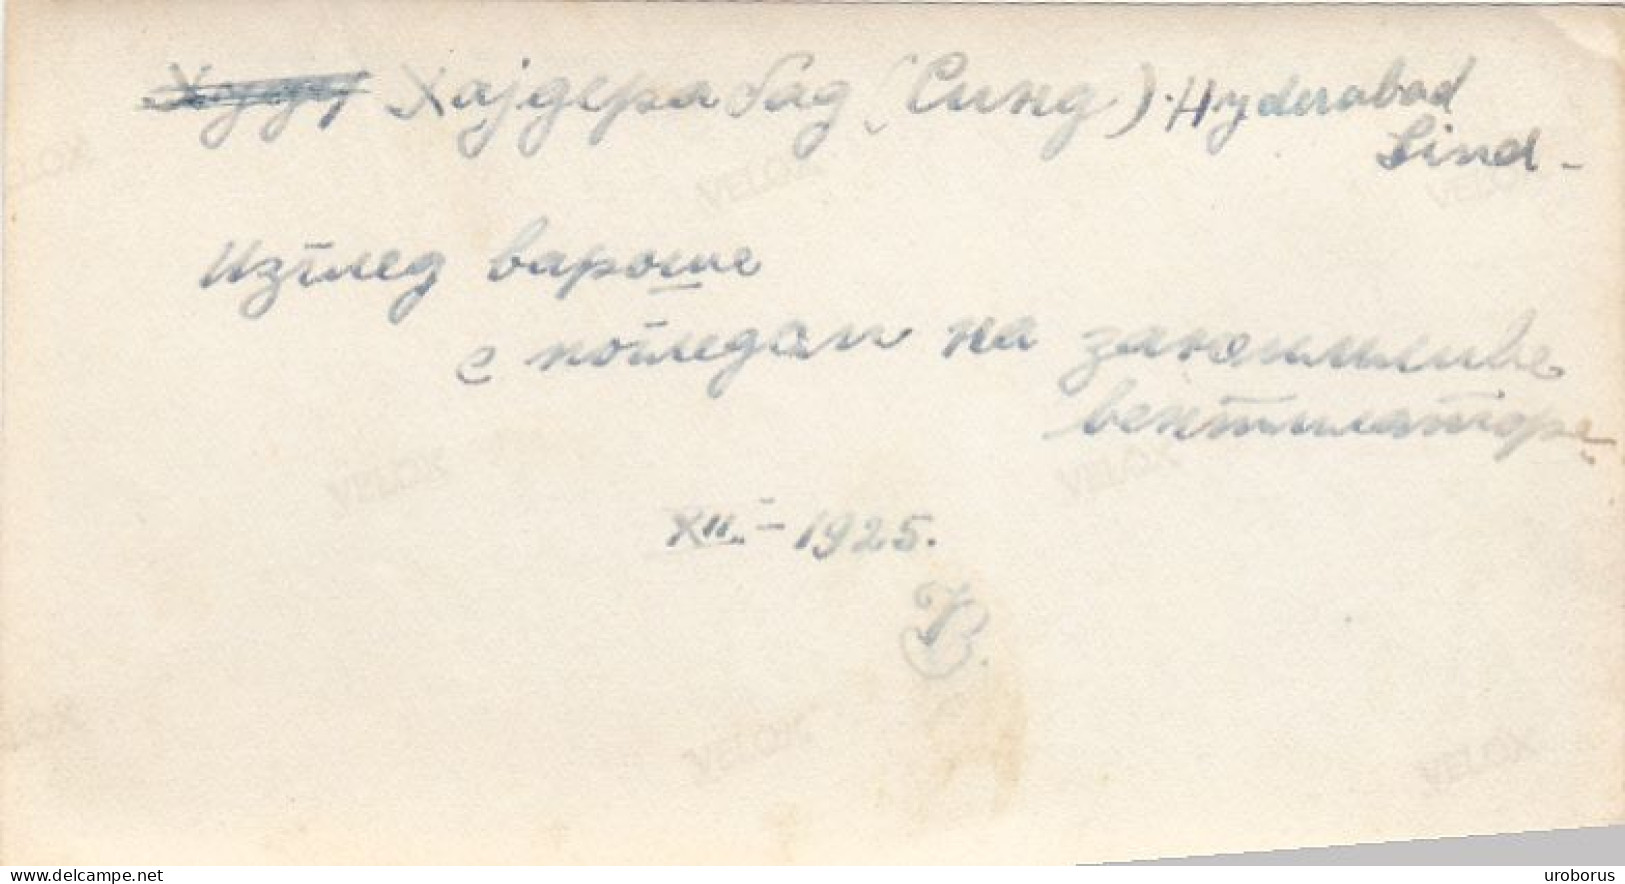 Хајдерабад (Синд). Hyderabad
Sind -
Изглед вароши
с погледом на занимљиве
вентилаторе.
XII. - 1925.
VELOX
VELOX
VELOX
VELOX
VELOX
VELOX
VELOX
VELOX
delcampe.net
uroborus